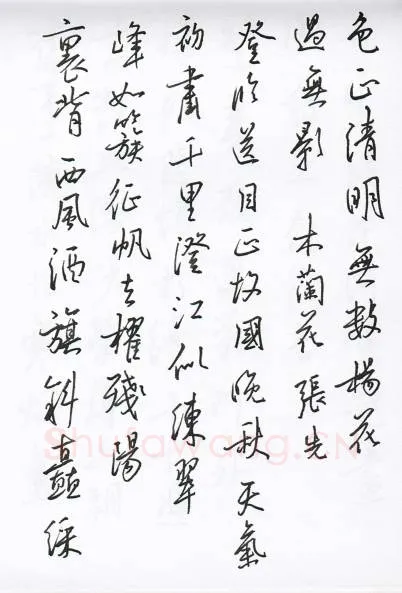 色正清明無數楊花
過無影 木蘭花 張先
登臨送目正故國晚秋天氣
初肅千里澄江似練翠
峰如簇征帆去櫂殘陽
裏背西風酒旗斜矗綵
Shufawang.CN